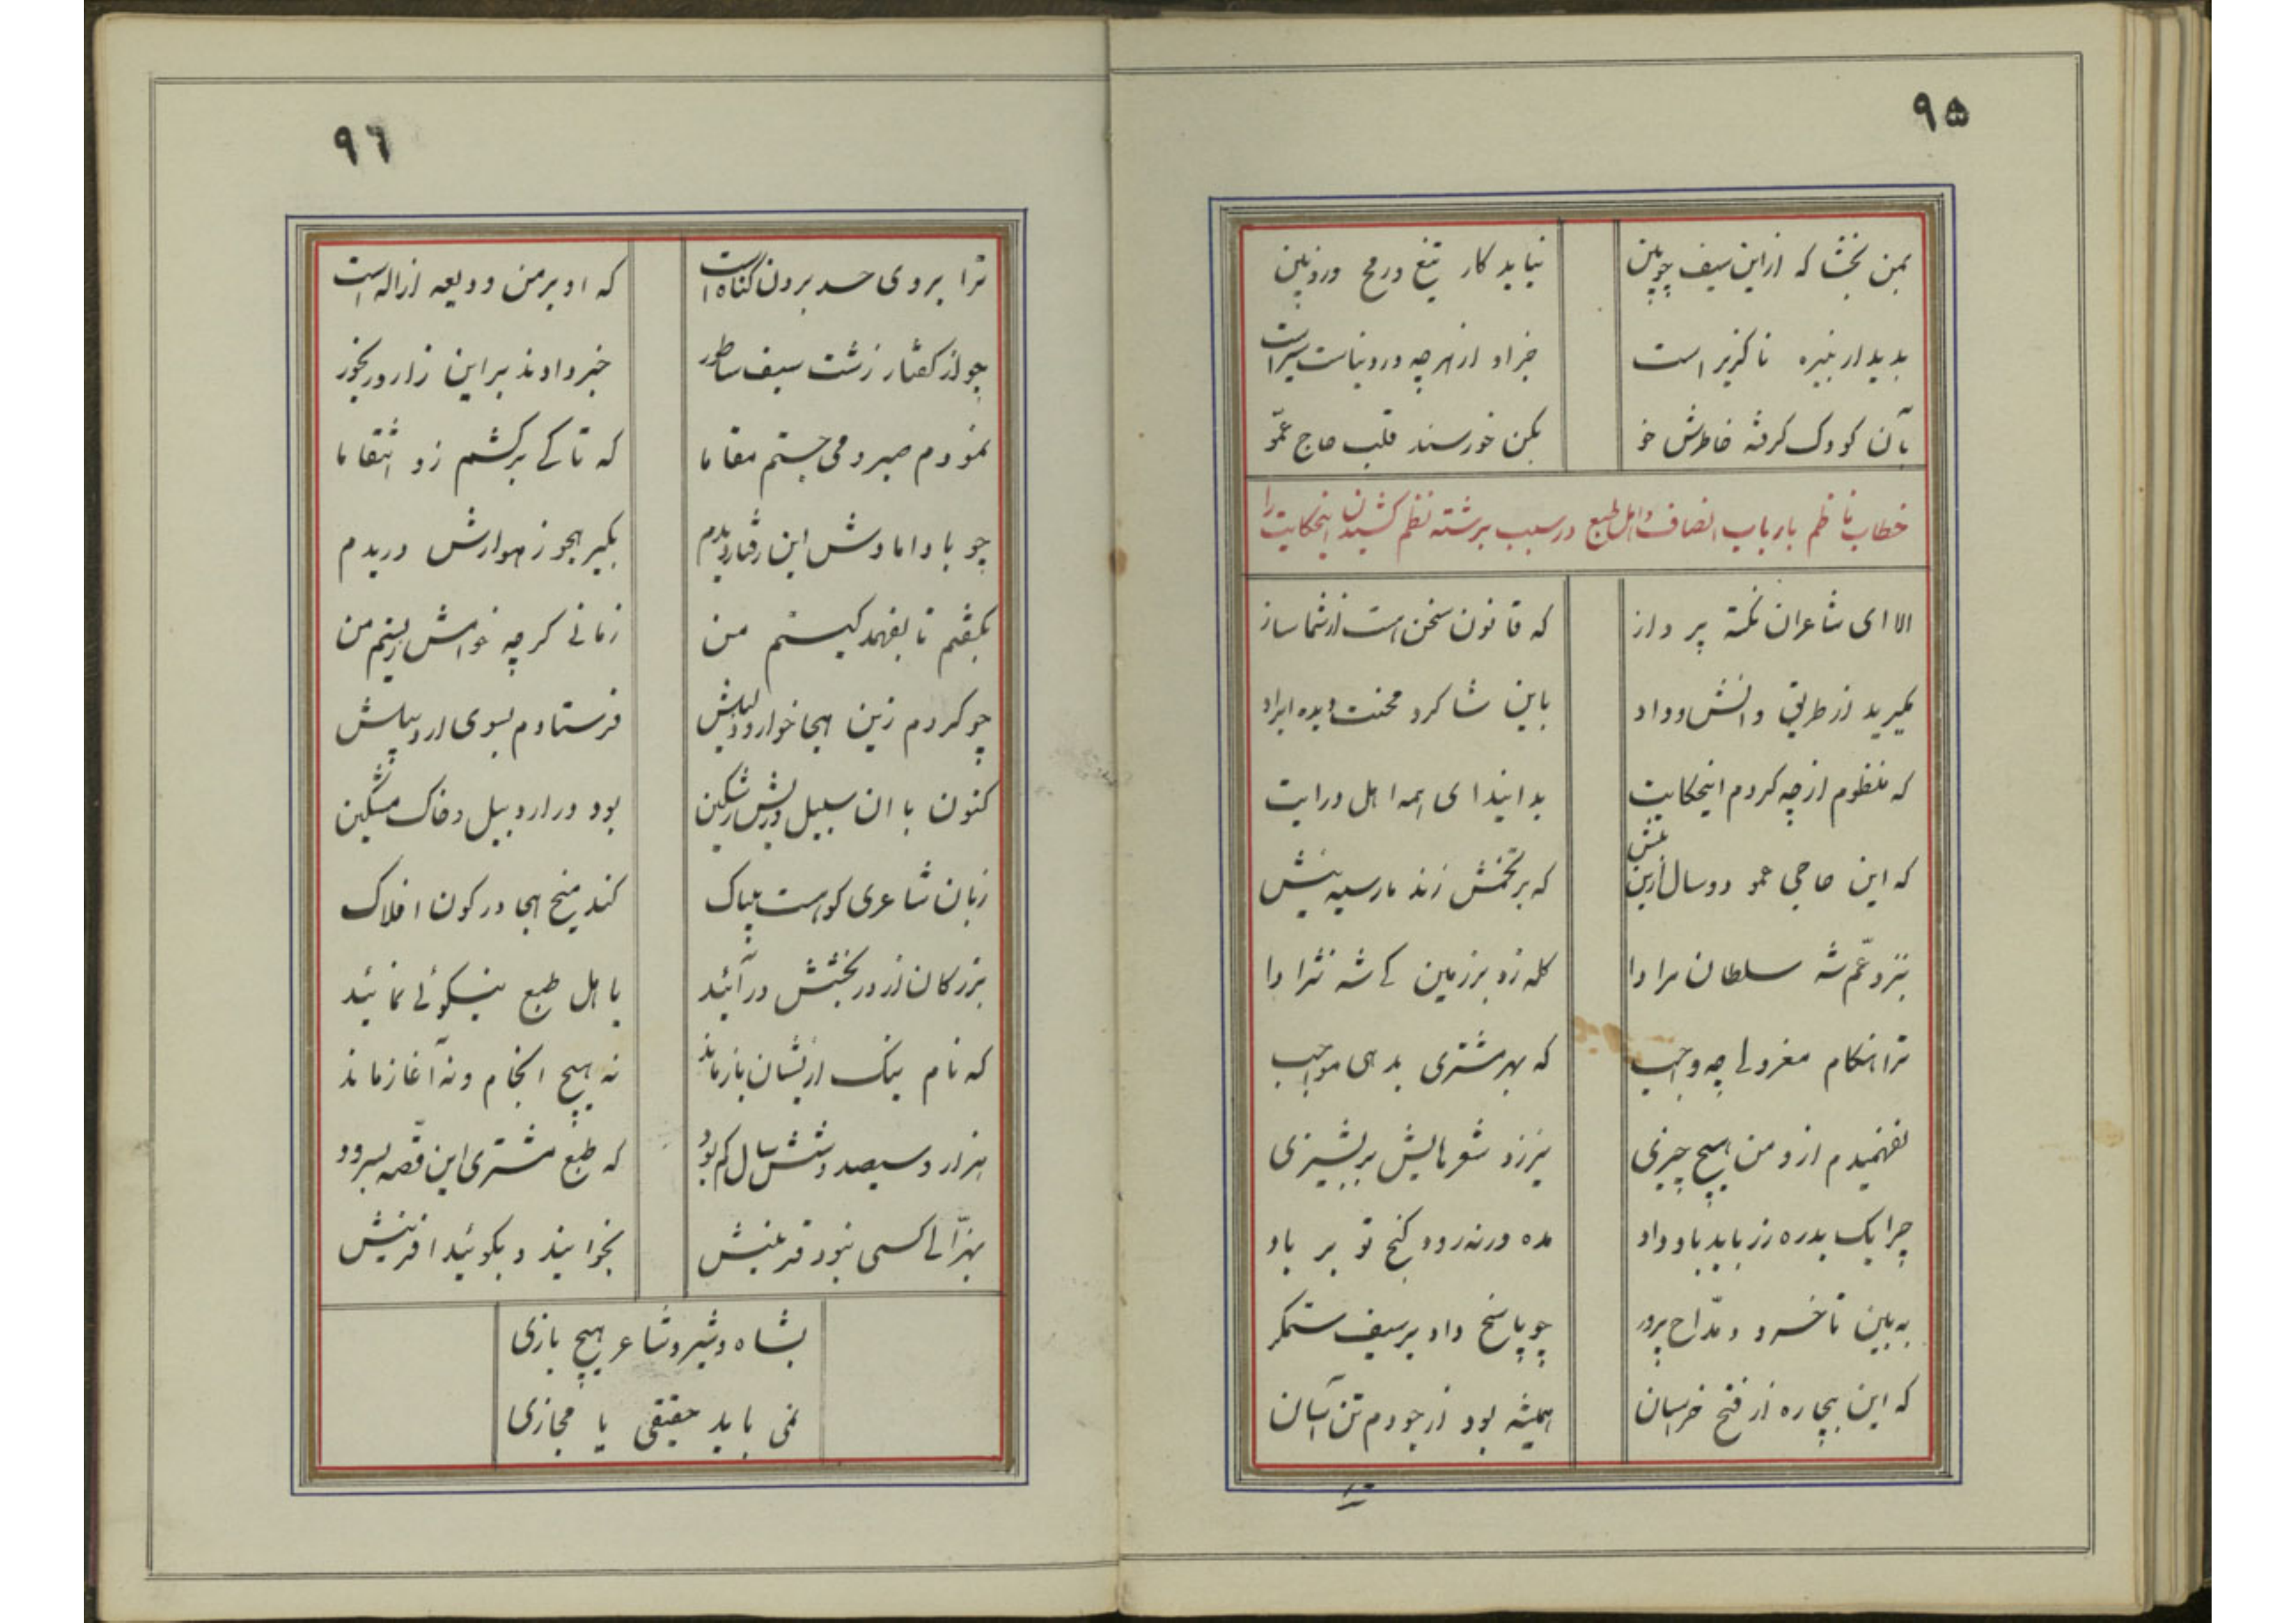 ۹۵
بمن بخشا که از این سیف چوبین نیاید کار تیغ و رمح روئین
بدیدار نبیره ناگزیر است جز او از هرچه در دنیاست سیر است
بآن کودک گرفته خاطرش خو بکن خورسند قلب حاج عمّو
خطاب ناظم بارباب انصاف و اهل طبع در سبب برشته نظم کشیدن اینحکایت را
الا ای شاعران نکته پرداز که قانون سخن است از شما ساز
مگیرید از طریق دانش و داد باین شاگرد محنت دیده ایراد
که منظوم از چه کردم اینحکایت بدانید ای همه اهل درایت
که این حاجی عمو دو سال ازین پیش که بر تخمش زند مار سیه نیش
بنزد عمّ شه سلطان مراد ا گله زد بر زمین کی شه نژاد ا
ترا هنگام معزولی چه واجب که بهر مشتری بدهی مواجب
نفهمیدم ازو من هیچ چیزی نیرزد شعرهایش بر پشیزی
چرا یک بدره زر باید باو داد مده ورنه رود گنج تو بر باد
به بین تا خسرو مدّاح پرور چو پاسخ داد بر سیف ستمگر
که این بیچاره از فتح خراسان همیشه بود از جودم تن آسان
۹۶
ترا بر وی حسد بردن گناه است که او بر من ودیعه از اله است
چو از گفتار زشت سیف ساطور خبر دادند بر این زار و رنجور
نمودم صبر و می جستم مقاما که تا کی برکشم زو انتقاما
چو با دامادش این رفتار دیدم بکیر هجو زهوارش دریدم
بگفتم تا بفهمد کیستم من زمانی گرچه خوامش ریستم من
چو کردم زین هجا خوار و ذلیلش فرستادم بسوی اردبیلش
کنون با ان سبیل و ریش رشکین بود در اردبیل و خاک مشکین
زبان شاعری کو هست بیباک کند میخ هجا در کون افلاک
بزرگان از در بخشش درآئید باهل طبع نیکوئی نمائید
که نام نیک ازیشان باز ماند نه هیچ انجام و نه آغاز ماند
هزار و سیصد و شش سال کم بود که طبع مشتری این قصّه بسرود
بهزّالی کسی نبود قرینش بخوانید و بگوئید افرینش
بشاه و شیر و شاعر هیچ بازی
نمی باید حقیقی یا مجازی